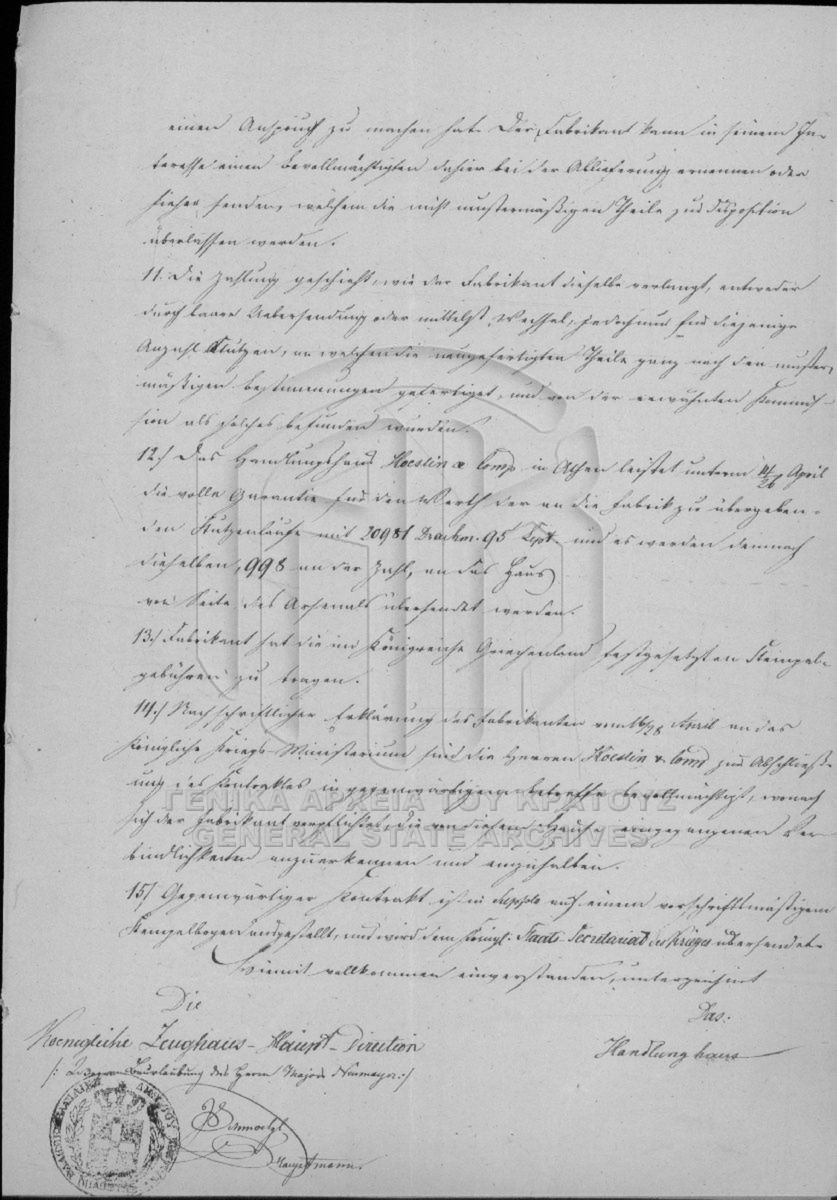 einen Anspruch zu machen hat. Der Fabrikant kann in seinem In-
teresse einen Bevollmächtigten dahier bei der Ablieferung ernennen oder
hieher senden, welchem die nicht mustermäßigen Theile zur Disposition
überlassen werden.
11. Die Zahlung geschieht, wie der Fabrikant dieselbe verlangt, entweder
durch baare Uebersendung oder mittelst Wechsel, jedoch nur für diejenige
Anzahl Stutzen, an welchen die neugefertigten Theile ganz nach den muster-
mäßigen Bestimmungen gefertiget, und von der erwähnten Kommis-
sion als solches befunden wurden.
12./ Das Handlungshaus Hoeslin & Comp in Athen leistet unterm 14/26 April
die volle Garantie für den Werth der an die Fabrik zu übergeben-
den Stutzenläufe mit 20981 Drachm. 95 Lept. und es werden demnach
dieselben, 998 an der Zahl, an das Haus
von Seite des Arsenals übersendet werden.
13./ Fabrikant hat die im Königreiche Griechenland festgesetzten Stempel-
gebühren zu tragen.
14./ Nach schriftlicher Erklärung des Fabrikanten vom 16/28 April an das
Königliche Kriegs-Ministerium sind die Herren Hoeslin & Comp zur Abschließ-
ung des Kontraktes in gegenwärtigem Betreffe bevollmächtigt, wonach
sich der Fabrikant verpflichtet, die von diesem Hause eingegangenen Ver-
bindlichkeiten anzuerkennen und einzuhalten.
15/ Gegenwärtiger Kontrakt ist in duplo auf einem vorschriftsmäßigem
Stempelbogen ausgestellt, und wird dem Königl: Staats Secretariat des Krieges übersendet.
Hiemit vollkommen einverstanden, unterzeichnet
Die
Das.
Koenigliche Zeughaus-Haupt-Direction
Handlunghaus
Beurlaubung des Herrn Majors Neumayer:/
Hauptmann.
ΓΕΝΙΚΑ ΑΡΧΕΙΑ ΤΟΥ ΚΡΑΤΟΥΣ
GENERAL STATE ARCHIVES